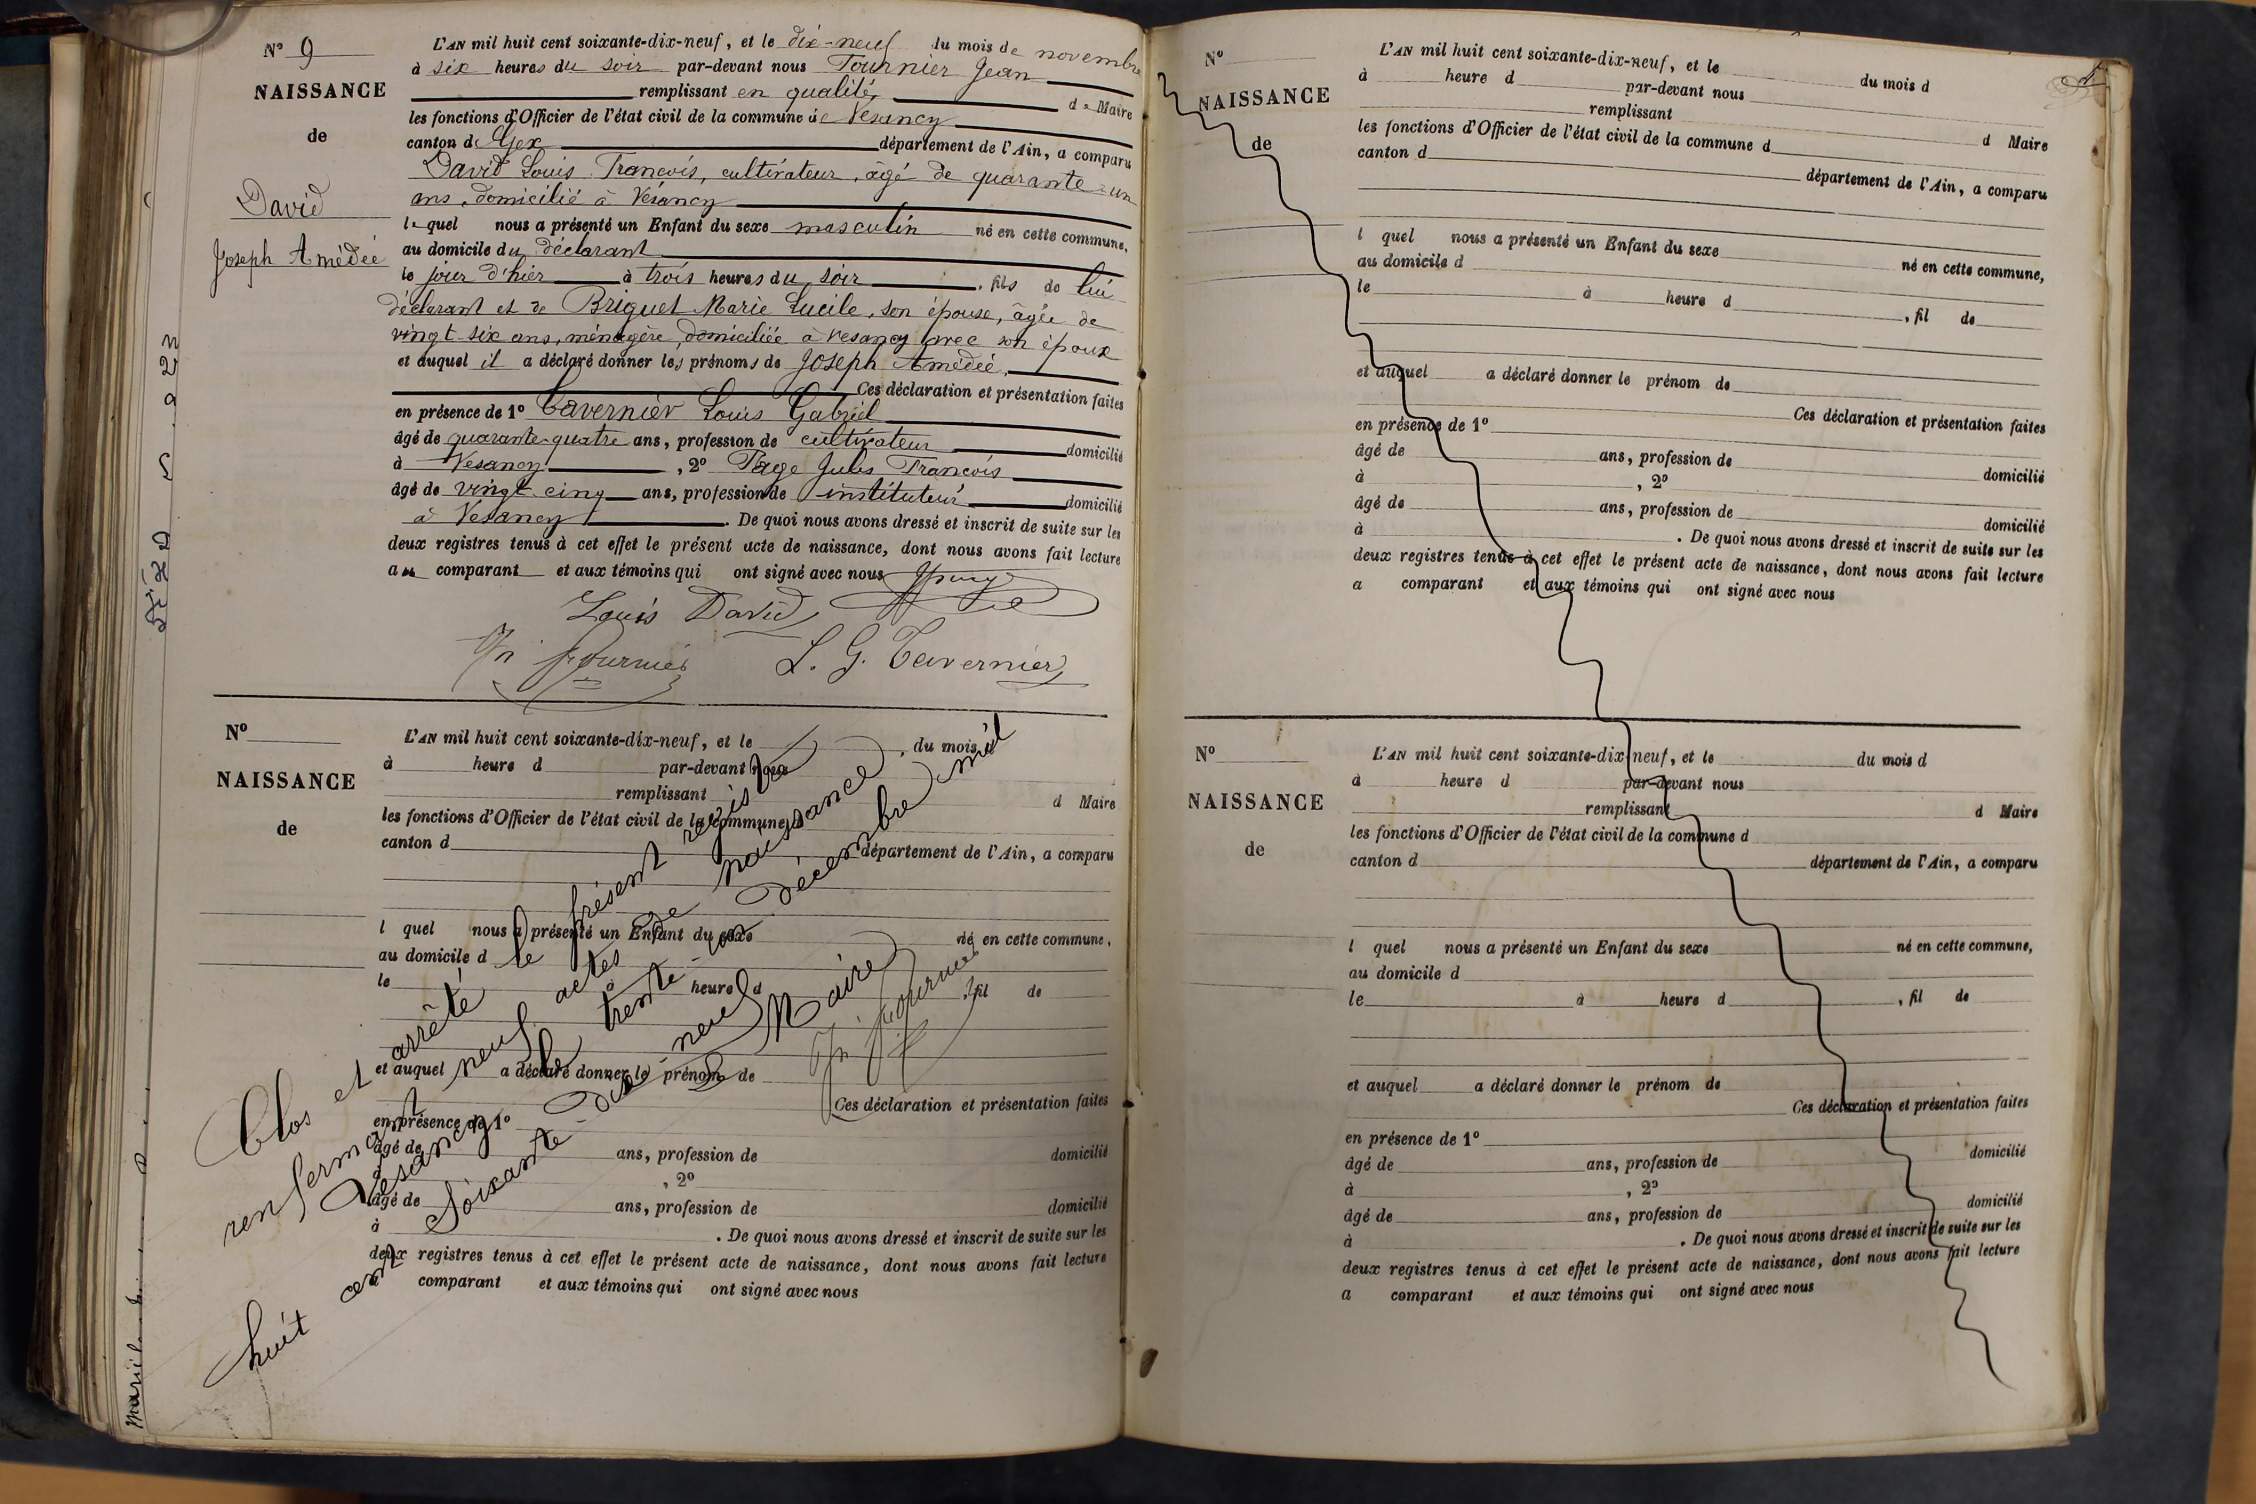 N° 9
NAISSANCE
de
David
Joseph Amédée
L'AN mil huit cent soixante-dix-neuf, et le dix-neuf du mois de novembre
à six heures du soir par-devant nous Fournier Jean
remplissant en qualité de Maire
les fonctions d'Officier de l'état civil de la commune de Vesancy
canton de Gex département de l'Ain, a comparu
David Louis François, cultivateur, âgé de quarante-un
ans, domicilié à Vesancy
lequel nous a présenté un Enfant du sexe masculin né en cette commune,
au domicile du déclarant
le jour d'hier à trois heures du soir, fils de lui
déclarant et de Briquet Marie Lucile, son épouse, âgée de
vingt six ans, ménagère, domiciliée à Vesancy avec son époux
et auquel il a déclaré donner les prénoms de Joseph Amédée.
Ces déclaration et présentation faites
en présence de 1° Tavernier Louis Gabriel
âgé de quarante-quatre ans, profession de cultivateur domicilié
à Vesancy, 2° Page Jules François
âgé de vingt cinq ans, profession de instituteur domicilié
à Vesancy. De quoi nous avons dressé et inscrit de suite sur les
deux registres tenus à cet effet le présent acte de naissance, dont nous avons fait lecture
au comparant et aux témoins qui ont signé avec nous
Louis David
Jn Fournier L. G. Tavernier
N°
NAISSANCE
de
L'AN mil huit cent soixante-dix-neuf, et le du mois d
à heure d par-devant nous
remplissant d Maire
les fonctions d'Officier de l'état civil de la commune d
canton d département de l'Ain, a comparu
l quel nous a présenté un Enfant du sexe né en cette commune,
au domicile d
le à heure d , fil de
et auquel a déclaré donner le prénom de
Ces déclaration et présentation faites
en présence de 1°
âgé de ans, profession de domicilié
à , 2°
âgé de ans, profession de domicilié
à . De quoi nous avons dressé et inscrit de suite sur les
deux registres tenus à cet effet le présent acte de naissance, dont nous avons fait lecture
a comparant et aux témoins qui ont signé avec nous
Clos et arrêté le présent registre
renfermant neuf actes de naissance.
Vesancy le trente-un décembre mil
huit cent soixante-dix-neuf
Maire
Jn Fournier
N°
NAISSANCE
de
L'AN mil huit cent soixante-dix-neuf, et le du mois d
à heure d par-devant nous
remplissant d Maire
les fonctions d'Officier de l'état civil de la commune d
canton d département de l'Ain, a comparu
l quel nous a présenté un Enfant du sexe né en cette commune,
au domicile d
le à heure d , fil de
et auquel a déclaré donner le prénom de
Ces déclaration et présentation faites
en présence de 1°
âgé de ans, profession de domicilié
à , 2°
âgé de ans, profession de domicilié
à . De quoi nous avons dressé et inscrit de suite sur les
deux registres tenus à cet effet le présent acte de naissance, dont nous avons fait lecture
a comparant et aux témoins qui ont signé avec nous
N°
NAISSANCE
de
L'AN mil huit cent soixante-dix-neuf, et le du mois d
à heure d par-devant nous
remplissant d Maire
les fonctions d'Officier de l'état civil de la commune d
canton d département de l'Ain, a comparu
l quel nous a présenté un Enfant du sexe né en cette commune,
au domicile d
le à heure d , fil de
et auquel a déclaré donner le prénom de
Ces déclaration et présentation faites
en présence de 1°
âgé de ans, profession de domicilié
à , 2°
âgé de ans, profession de domicilié
à . De quoi nous avons dressé et inscrit de suite sur les
deux registres tenus à cet effet le présent acte de naissance, dont nous avons fait lecture
a comparant et aux témoins qui ont signé avec nous